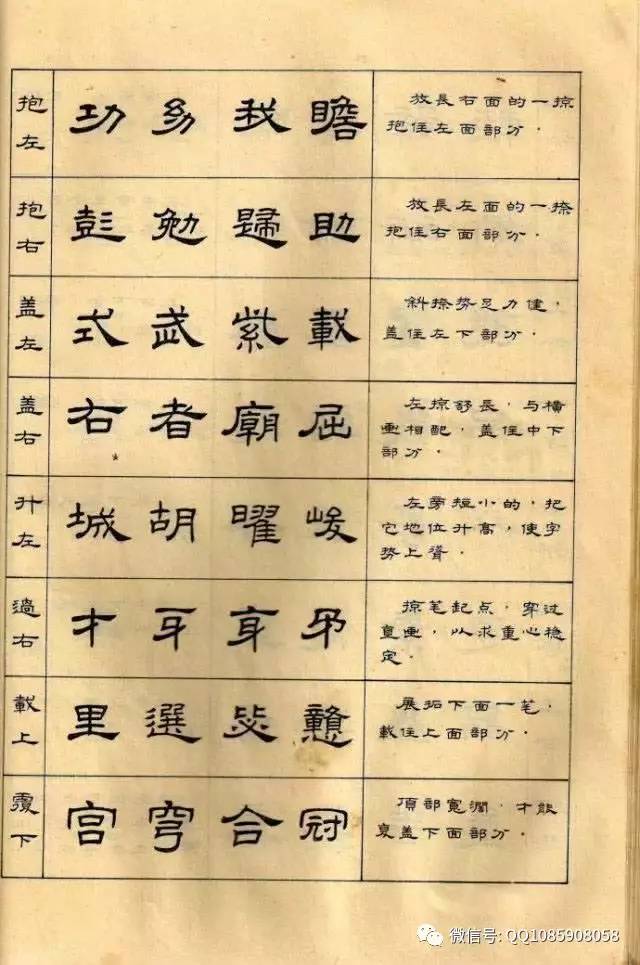 抱左
功 幼 我 瞻
放長右面的一掠
抱住左面部分．
抱右
彭 勉 歸 助
放長左面的一捺
抱住右面部分．
盖左
式 武 紫 載
斜捺势足力健，
盖住左下部分．
盖右
右 者 廟 屈
左掠舒長，与横
画相配，盖住中下
部分．
升左
城 胡 曜 峻
左旁短小的，把
它地位升高，使字
势上聳．
過右
才 牙
掠笔起点，穿过
直画，以求重心稳
定．
載上
里 選 毖
展拓下面一笔，
載住上面部分．
覆下
宫 穹 合 冠
頂部寬濶，才能
复盖下面部分．
微信号: QQ1085908058